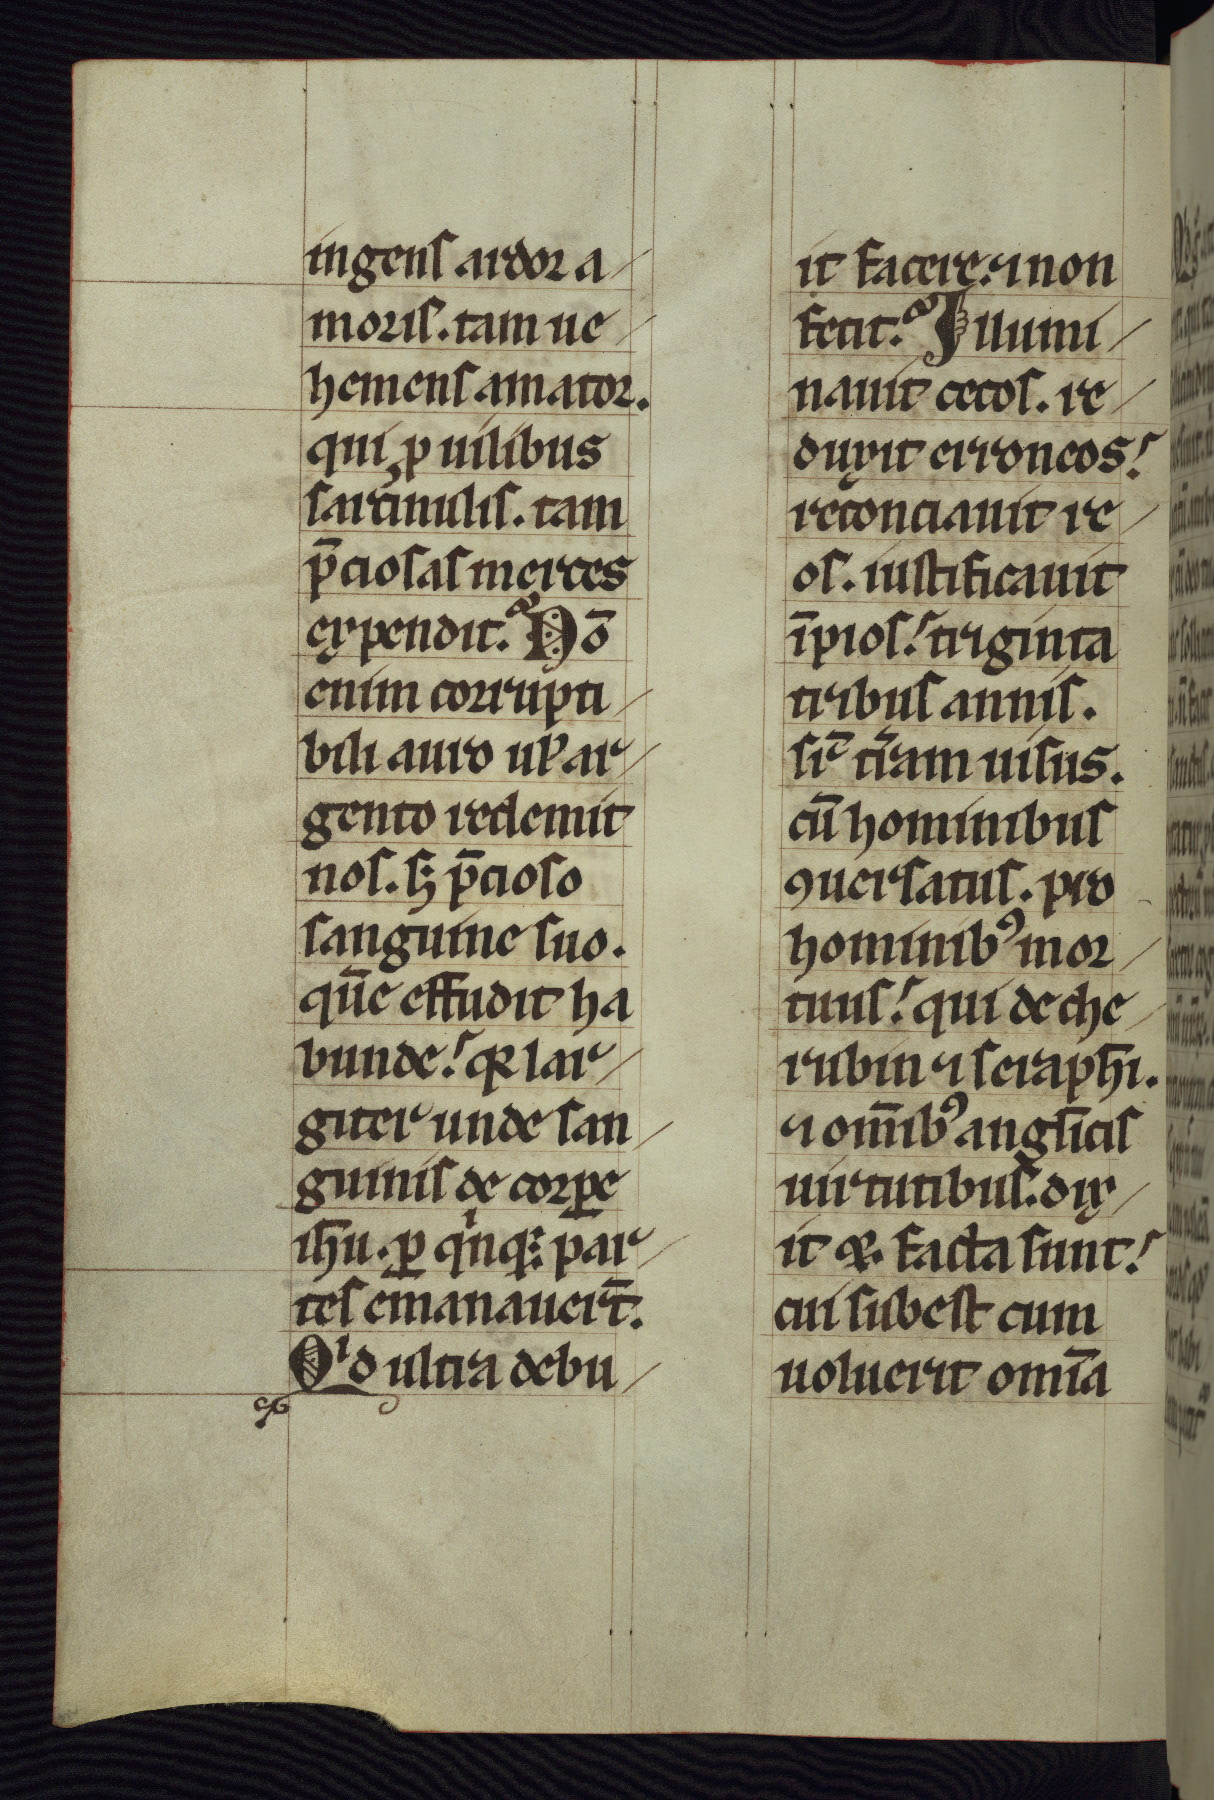 ingens ardor a/
moris. tam ue/
hemens amator.
qui p uilibus
sarcinulis. tam
p̄ciosas merces
expendit. Nō
enim corrupti/
bili auro uł ar/
gento redemit
nos. sꝫ p̄cioso
sanguine suo.
quē effudit ha
bunde! qꝛ lar/
giter unde san/
guinis de corꝑe
ihū. ꝑ qͥnqꝫ par/
tes emanauer̄t.
Qͥd ultra debu/
it facere. ⁊ non
fecit. Illumi/
nauit cecos. re/
duxit erroneos!
reconciauit re/
os. iustificauit
īpios! triginta
tribus annis.
sr̄ t̄ram uisus.
cū hominibus
ꝯuersatus. pro
hominibꝰ mor/
tuus! qui de che/
rubin ⁊ seraph̄i.
⁊ om̄ibꝰ angl̄icis
uirtutibus. dix/
it ⁊. facta sunt!
cui subest cum
uoluerit om̄ia